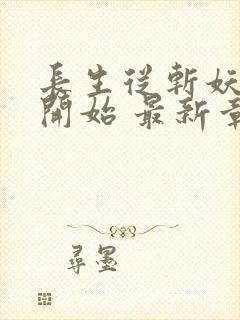 長生從斬妖
開始 最新章
尋墨